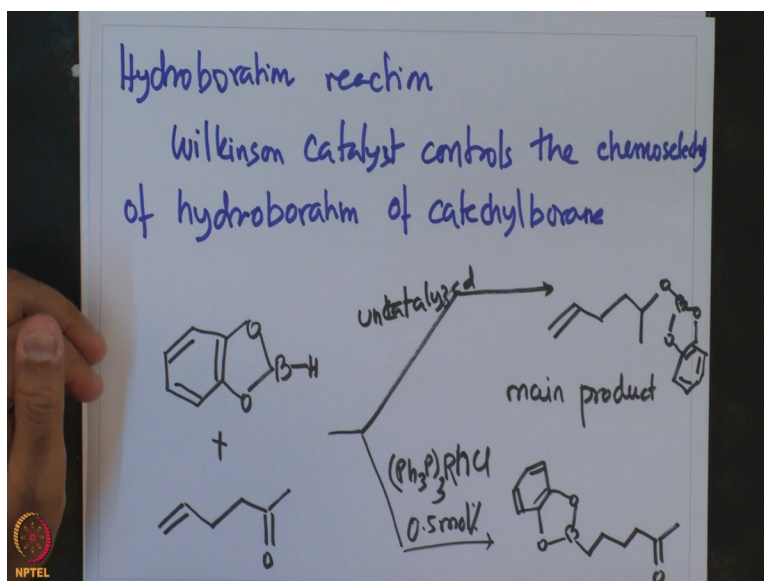 Hydroboration reaction
Wilkinson Catalyst controls the chemoselectivity
of hydroboration of catechylborane
uncatalyzed
O
B-H
O
+
O
O
B
O
O
main product
(Ph3P)3RhCl
0.5mol%
O
B
O
O
NPTEL